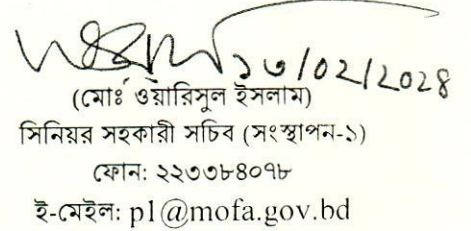 ১৩/০২/২০২৪
(মোঃ ওয়ারিসুল ইসলাম)
সিনিয়র সহকারী সচিব (সংস্থাপন-১)
ফোন: ২২৩৩৮৪০৭৮
ই-মেইল: p1@mofa.gov.bd